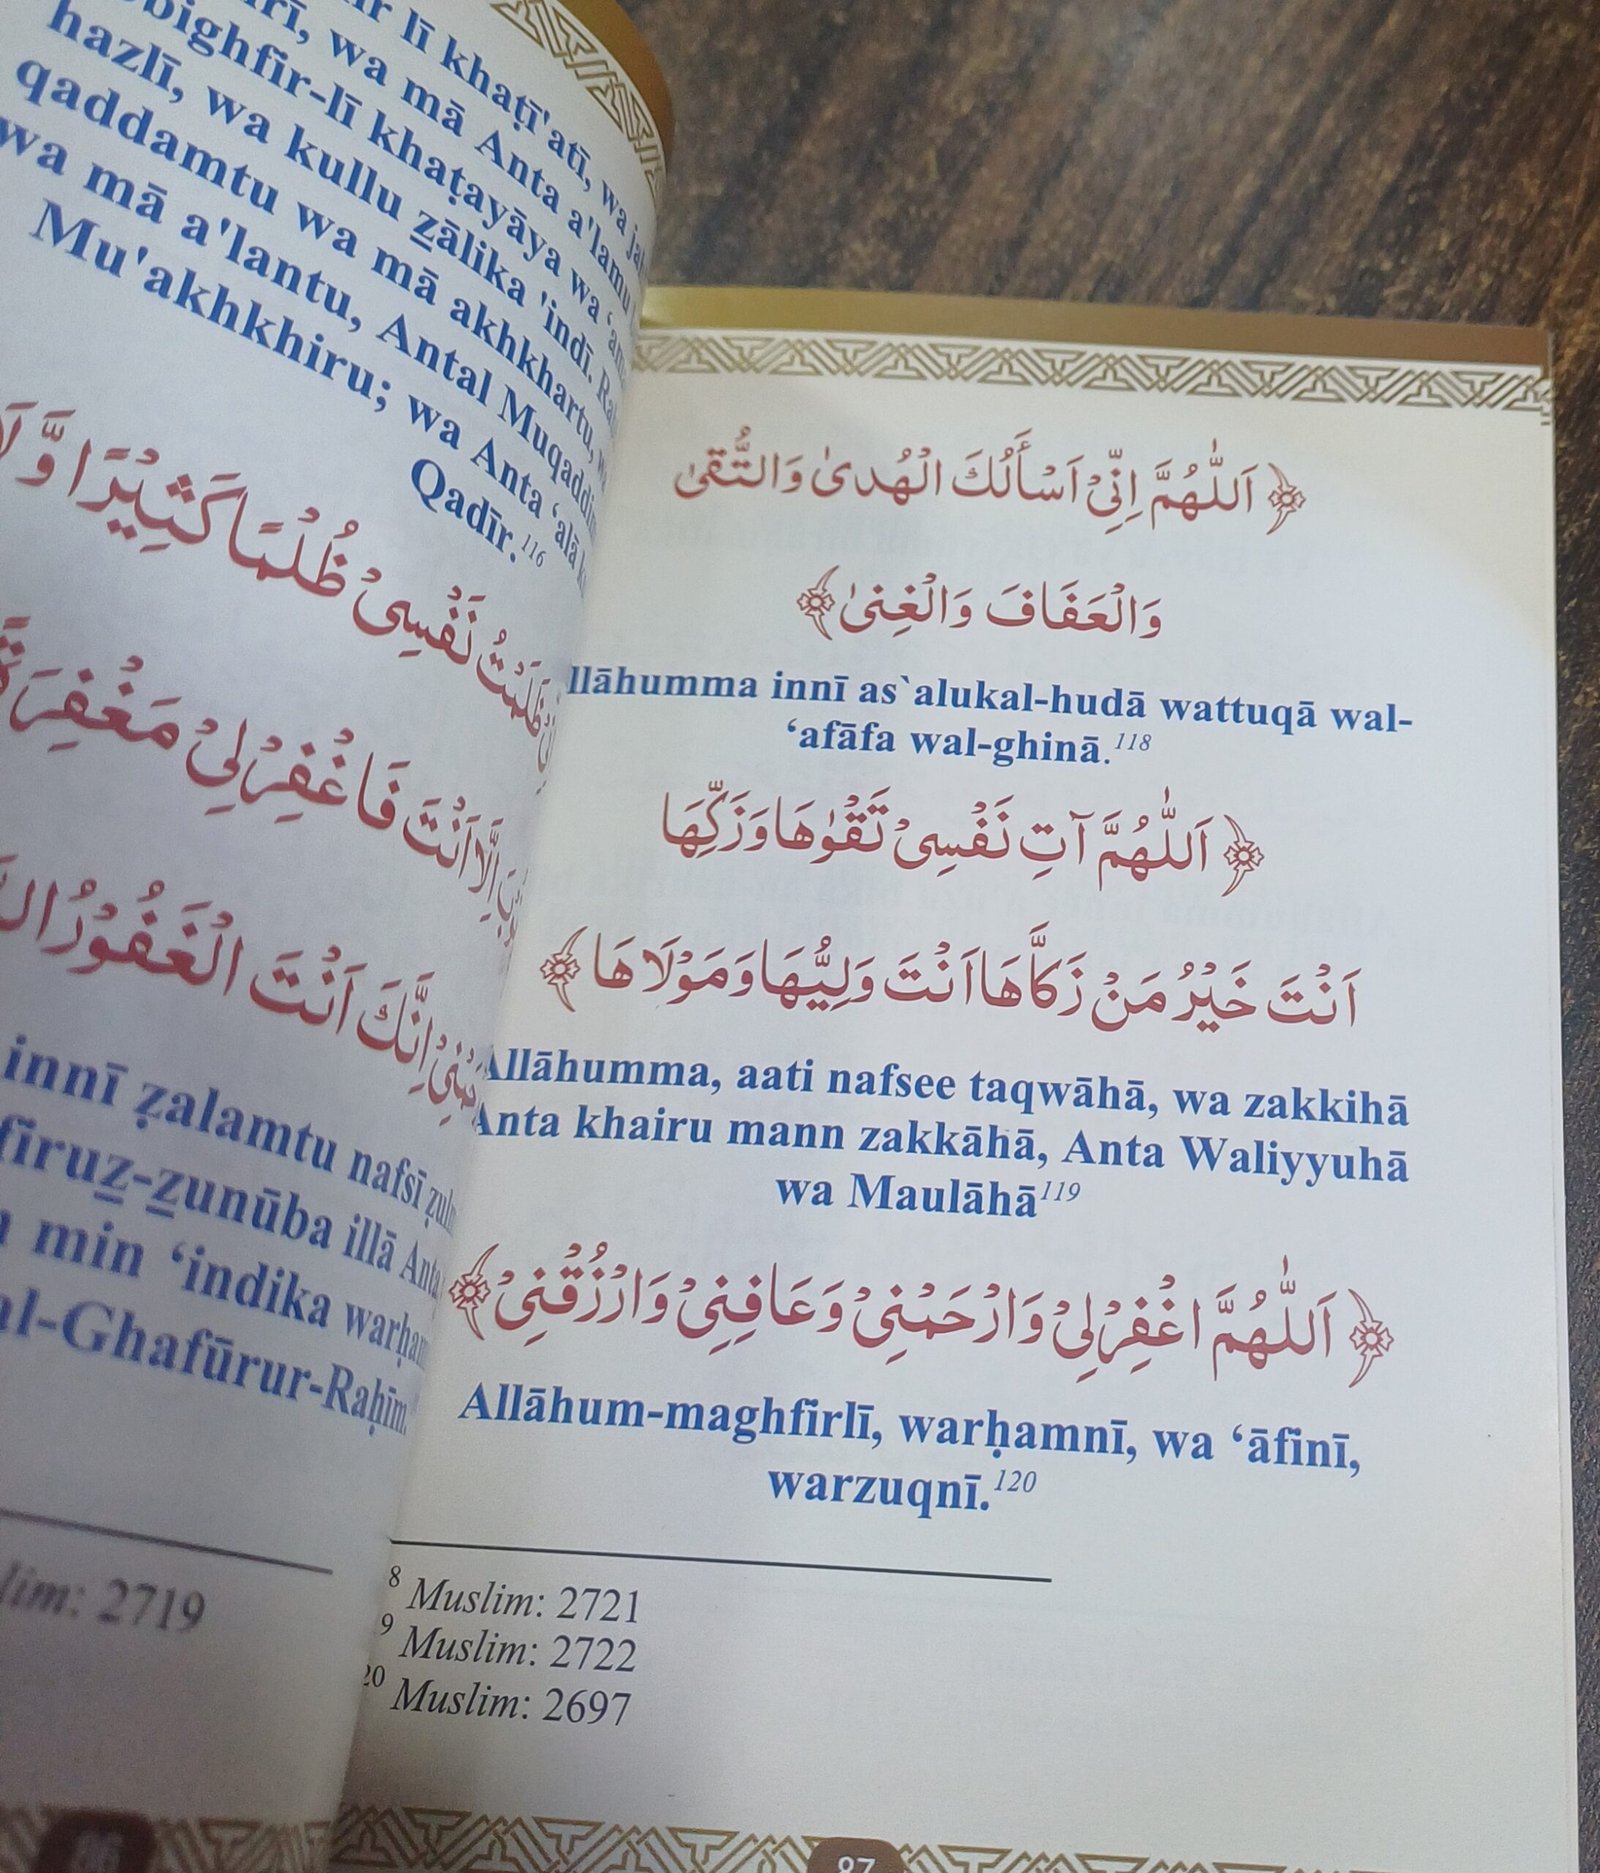 lī khaṭī'atī, wa
wa mā Anta a'lamu
khaṭayāya wa
hazlī, wa kullu z̲ālika 'indī.
qaddamtu wa mā akhkhartu,
wa mā a'lantu, Antal Muqaddim
Mu'akhkhiru; wa Anta ‘alā
Qadīr.116
ظَلَمْتُ نَفْسِىْ ظُلْمًا كَثِيْرًا وَّلَا
اِلَّا اَنْتَ فَاغْفِرْلِىْ مَغْفِرَةً
اِنَّكَ اَنْتَ الْغَفُوْرُ
innī ẓalamtu nafsī
z̲unūba illā Anta
min ‘indika
al-Ghafūrur-Raḥīm.
2719
﴿ اَللّٰهُمَّ اِنِّىْ اَسْأَلُكَ الْهُدىٰ وَالتُّقىٰ
وَالْعَفَافَ وَالْغِنىٰ ﴾
llāhumma innī as`alukal-hudā wattuqā wal-
‘afāfa wal-ghinā.118
﴿ اَللّٰهُمَّ آتِ نَفْسِىْ تَقْوٰهَا وَزَكِّهَا
اَنْتَ خَيْرُ مَنْ زَكَّاهَا اَنْتَ وَلِيُّهَا وَمَوْلَاهَا ﴾
Allāhumma, aati nafsee taqwāhā, wa zakkihā
Anta khairu mann zakkāhā, Anta Waliyyuhā
wa Maulāhā119
﴿ اَللّٰهُمَّ اغْفِرْلِىْ وَارْحَمْنِىْ وَعَافِنِىْ وَارْزُقْنِىْ ﴾
Allāhum-maghfirlī, warḥamnī, wa ‘āfinī,
warzuqnī.120
8 Muslim: 2721
9 Muslim: 2722
20 Muslim: 2697
87